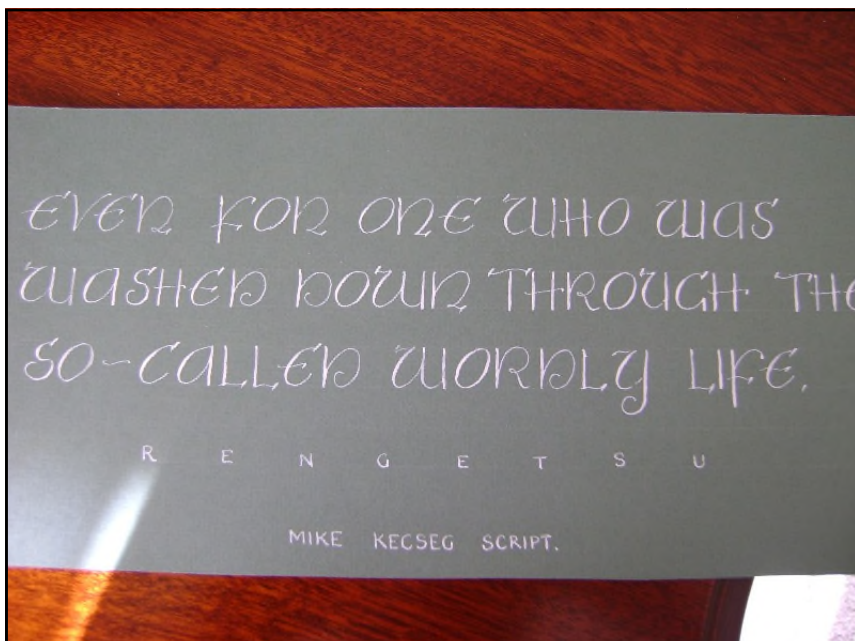 EVEN FOR ONE WHO WAS
WASHED DOWN THROUGH THE
SO-CALLED WORDLY LIFE.
RENGETSU
MIKE KECSEG SCRIPT.